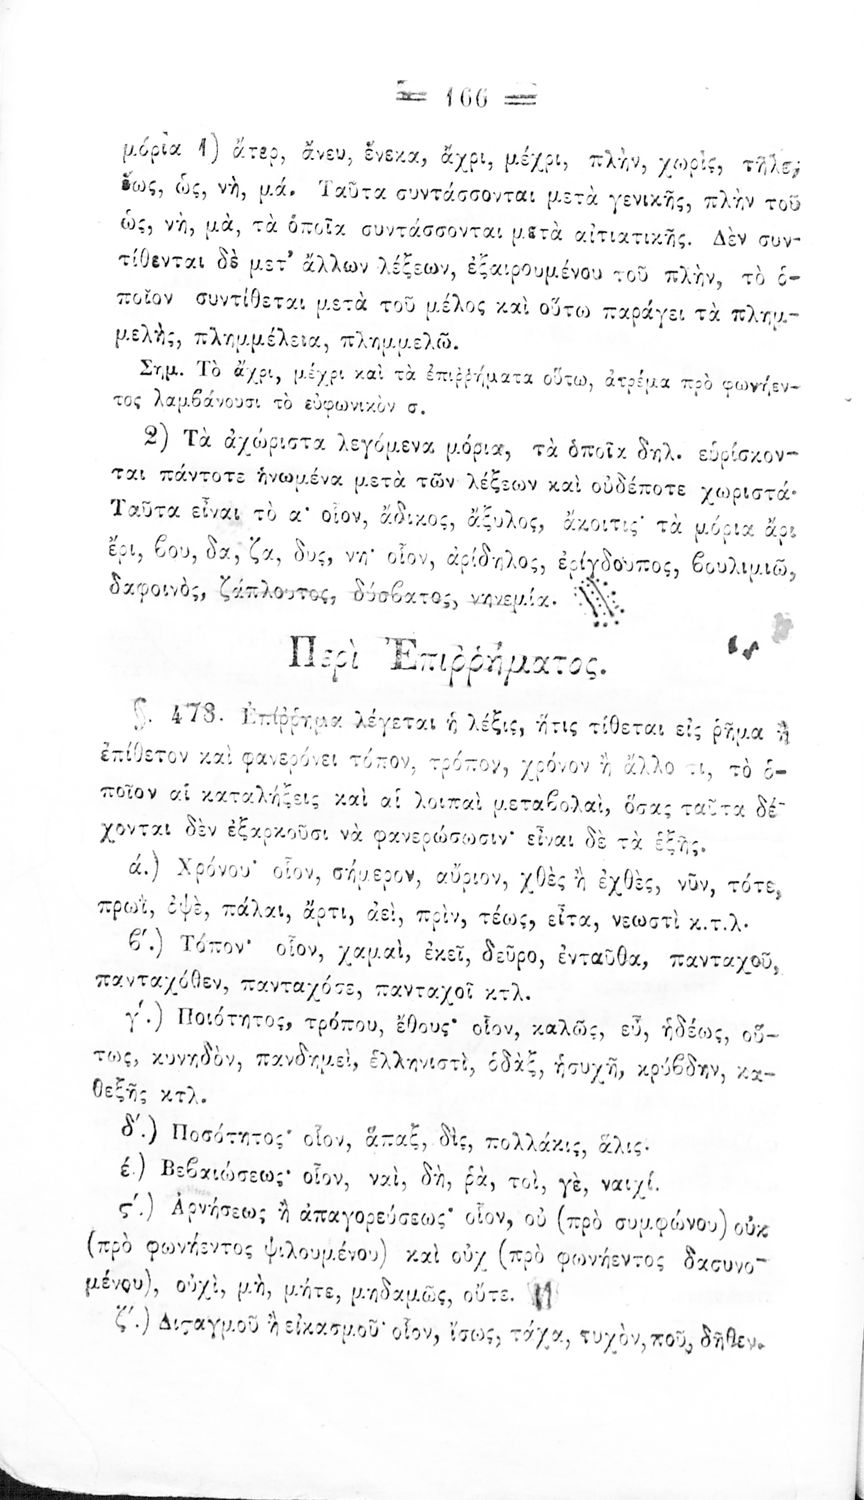 = 166 =
μόρια 1) ἄτερ, ἄνευ, ἕνεκα, ἄχρι, μέχρι, πλὴν, χωρὶς, τῆλε,
ἕως, ὡς, νὴ, μά. Ταῦτα συντάσσονται μετὰ γενικῆς, πλὴν τοῦ
ὡς, νὴ, μὰ, τὰ ὁποῖα συντάσσονται μετὰ αἰτιατικῆς. Δὲν συν-
τίθενται δὲ μετ' ἄλλων λέξεων, ἐξαιρουμένου τοῦ πλὴν, τὸ ὁ-
ποῖον συντίθεται μετὰ τοῦ μέλος καὶ οὕτω παράγει τὰ πλημ-
μελὴς, πλημμέλεια, πλημμελῶ.
Σημ. Τὸ ἄχρι, μέχρι καὶ τὰ ἐπιῤῥήματα οὕτω, ἀτρέμα πρὸ φωνήεν-
τος λαμβάνουσι τὸ εὐφωνικὸν σ.
2) Τὰ ἀχώριστα λεγόμενα μόρια, τὰ ὁποῖα δηλ. εὑρίσκον-
ται πάντοτε ἡνωμένα μετὰ τῶν λέξεων καὶ οὐδέποτε χωριστά·
Ταῦτα εἶναι τὸ α· οἷον, ἄδικος, ἄξυλος, ἄκοιτις· τὰ μόρια ἄρι
ἔρι, βου, δα, ζα, δυς, νη· οἷον, ἀρίδηλος, ἐρίγδουπος, βουλιμιῶ,
δαφοινὸς, ζάπλουτος, δύσβατος, νηνεμία.
Περὶ Ἐπιῤῥήματος.
§. 473. Ἐπίῤῥημα λέγεται ἡ λέξις, ἥτις τίθεται εἰς ῥῆμα ἢ
ἐπίθετον καὶ φανερόνει τόπον, τρόπον, χρόνον ἢ ἄλλο τι, τὸ ὁ-
ποῖον αἱ καταλήξεις καὶ αἱ λοιπαὶ μεταβολαὶ, ὅσας ταῦτα δέ-
χονται δὲν ἐξαρκοῦσι νὰ φανερώσωσιν· εἶναι δὲ τὰ ἑξῆς.
ά.) Χρόνου· οἷον, σήμερον, αὔριον, χθὲς ἢ ἐχθὲς, νῦν, τότε,
πρωῒ, ὀψὲ, πάλαι, ἄρτι, ἀεὶ, πρὶν, τέως, εἶτα, νεωστὶ κ.τ.λ.
β'.) Τόπον· οἷον, χαμαὶ, ἐκεῖ, δεῦρο, ἐνταῦθα, πανταχοῦ,
πανταχόθεν, πανταχόσε, πανταχοῖ κτλ.
γ'.) Ποιότητος, τρόπου, ἔθους· οἷον, καλῶς, εὖ, ἡδέως, οὕ-
τως, κυνηδὸν, πανδημεὶ, ἑλληνιστὶ, ὀδὰξ, ἡσυχῆ, κρύβδην, κα-
θεξῆς κτλ.
δ'.) Ποσότητος· οἷον, ἅπαξ, δὶς, πολλάκις, ἅλις·
έ.) Βεβαιώσεως· οἷον, ναὶ, δὴ, ῥὰ, τοὶ, γὲ, ναιχί.
ϛ'.) Ἀρνήσεως ἢ ἀπαγορεύσεως· οἷον, οὐ (πρὸ συμφώνου) οὐκ
(πρὸ φωνήεντος ψιλουμένου) καὶ οὐχ (πρὸ φωνήεντος δασυνο-
μένου), οὐχὶ, μὴ, μήτε, μηδαμῶς, οὔτε.
ζ'.) Διϛαγμοῦ ἢ εἰκασμοῦ· οἷον, ἴσως, τάχα, τυχὸν, ποῦ, δῆθεν.